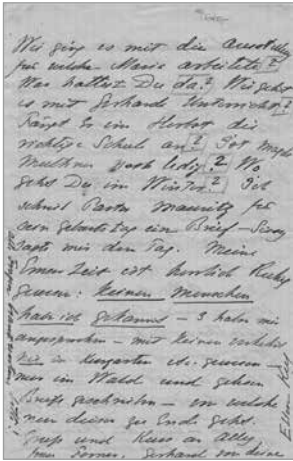 Wie ging es mit die Ausstellung
für welche Marie arbeitete?
Was hattest Du da? Wie geht
es mit Gerhards Unterricht?
Fängt Er im Herbst die
richtige Schule an? Ist
noch ledig? Wo
gehst Du im Winter? Ich
schrieb Pastor Mauritz für
sein Geburtstag ein Brief –
sagte mir den Tag. Meine
Emser Zeit ist herrlich Ruhig
gewesen: keinen Menschen
habe ich gekannt – 3 haben mich
angesprochen – mit keinen verkehrt
nie in Kurgarten etc. gewesen –
nur im Wald und gehen
Briefe geschrieben – von welche
nun dieser zu Ende geht.
Gruss und Kuss an Alle,
Gerhard von deine
Ellen Key